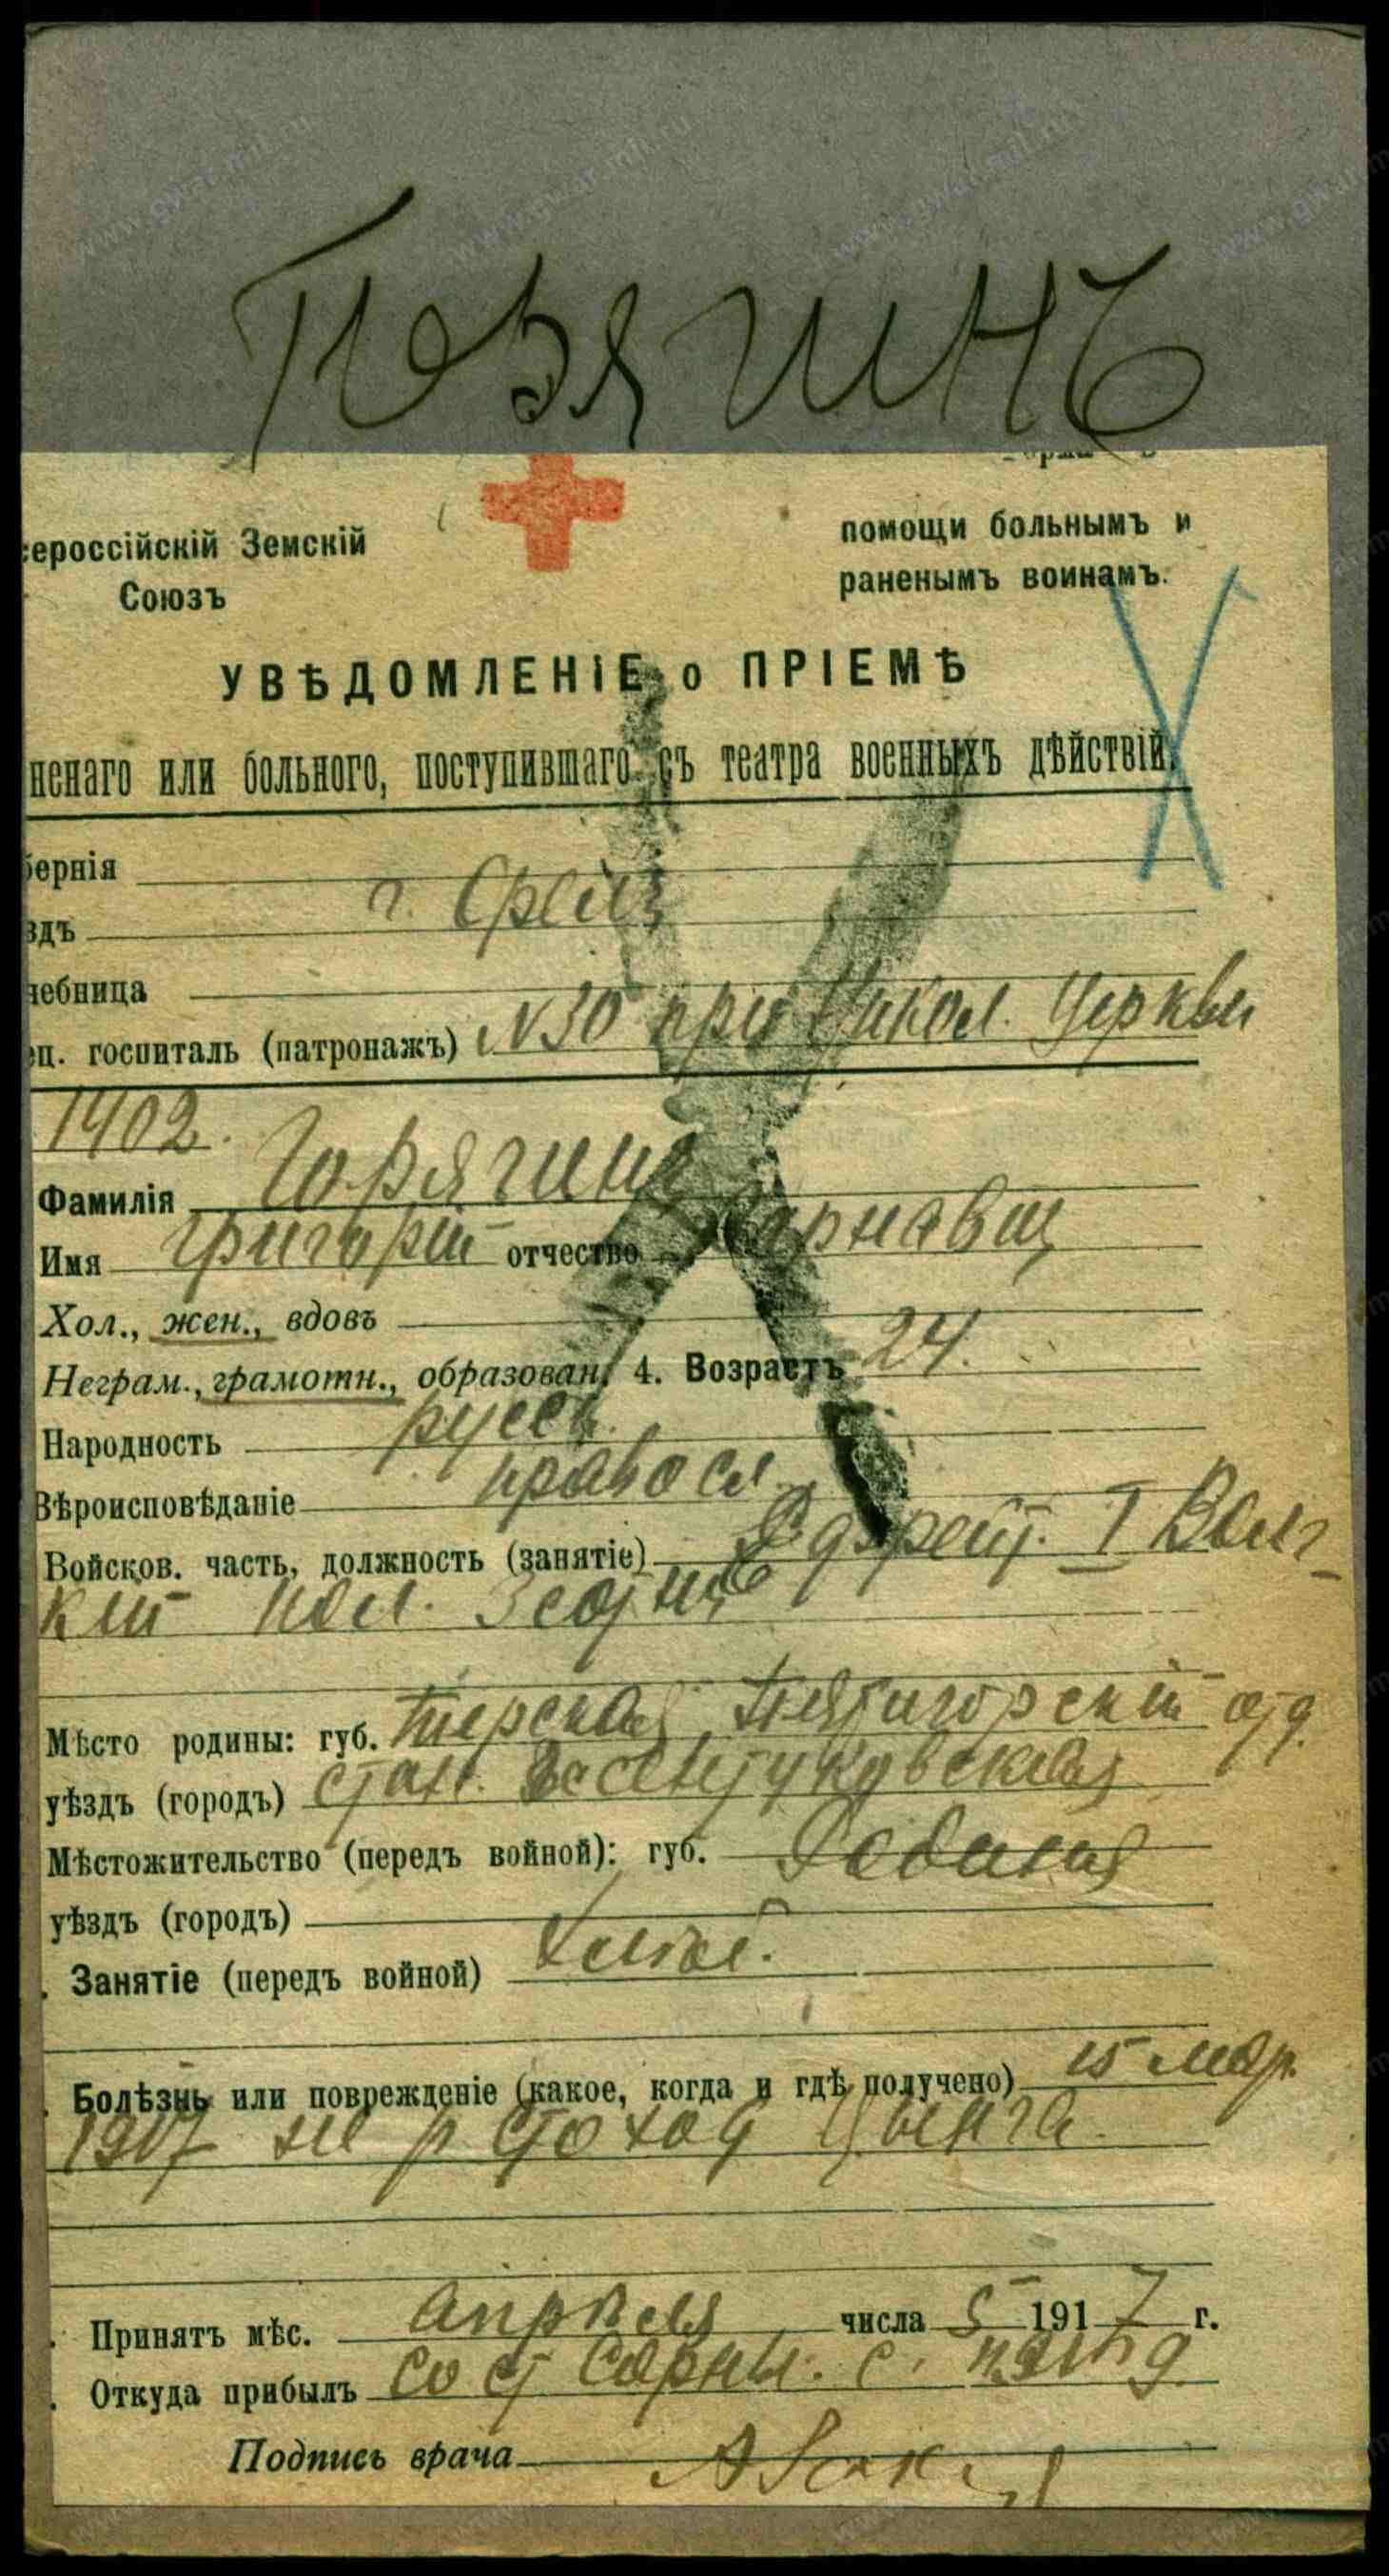 ероссійскій Земскій
Союзъ
помощи больнымъ и
раненымъ воинамъ.
УВѢДОМЛЕНІЕ о ПРІЕМѢ
ненаго или больного, поступившаго съ театра военныхъ дѣйствій.
бернія
здъ г. Орелъ
чебница
ц. госпиталь (патронажъ) №30 при Никол. Церкви
1402.
Фамилія
Имя Григорій отчество
Хол., жен., вдовъ
Неграм., грамотн., образован. 4. Возрастъ 24.
Народность русск.
Вѣроисповѣданіе правосл.
Войсков. часть, должность (занятіе) Ефрейт. I Волг
кій пол. 3 сотни
Мѣсто родины: губ. Терская Пятигорскій отд.
уѣздъ (городъ) стан. Ессентуковская
Мѣстожительство (передъ войной): губ. Родина
уѣздъ (городъ)
Занятіе (передъ войной) Хлѣб.
Болѣзнь или поврежденіе (какое, когда и гдѣ получено) 15 мар.
1917 на р Стоход Цынга.
Принятъ мѣс. апрѣля числа 5 1917 г.
Откуда прибылъ со ст Сарны. с. поѣзд.
Подпись врача
www.gwar.mil.ru